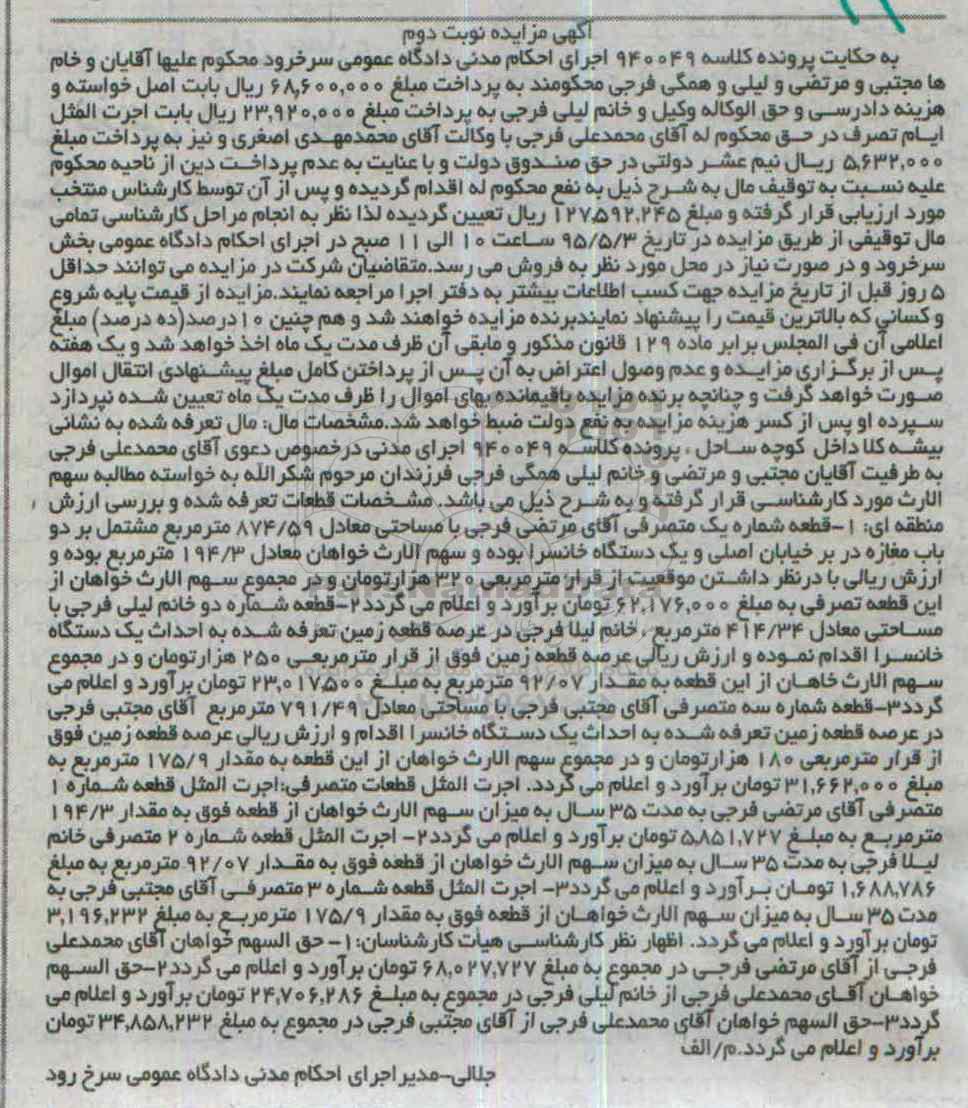 آگهی مزایده نوبت دوم
به حکایت پرونده کلاسه ۹۴۰۰۴۹ اجرای احکام مدنی دادگاه عمومی سرخرود محکوم علیها آقایان و خام
ها مجتبی و مرتضی و لیلی و همگی فرجی محکومند به پرداخت مبلغ ۶۸,۶۰۰,۰۰۰ ریال بابت اصل خواسته و
هزینه دادرسی و حق الوکاله وکیل و خانم لیلی فرجی به پرداخت مبلغ ۲۳,۹۲۰,۰۰۰ ریال بابت اجرت المثل
ایام تصرف در حق محکوم له آقای محمدعلی فرجی با وکالت آقای محمدمهدی اصغری و نیز به پرداخت مبلغ
۵,۶۳۲,۰۰۰ ریال نیم عشر دولتی در حق صندوق دولت و با عنایت به عدم پرداخت دین از ناحیه محکوم
علیه نسبت به توقیف مال به شرح ذیل به نفع محکوم له اقدام گردیده و پس از آن توسط کارشناس منتخب
مورد ارزیابی قرار گرفته و مبلغ ۱۲۷,۵۹۲,۲۴۵ ریال تعیین گردیده لذا نظر به انجام مراحل کارشناسی تمامی
مال توقیفی از طریق مزایده در تاریخ ۹۵/۵/۳ ساعت ۱۰ الی ۱۱ صبح در اجرای احکام دادگاه عمومی بخش
سرخرود و در صورت نیاز در محل مورد نظر به فروش می رسد.متقاضیان شرکت در مزایده می توانند حداقل
۵ روز قبل از تاریخ مزایده جهت کسب اطلاعات بیشتر به دفتر اجرا مراجعه نمایند.مزایده از قیمت پایه شروع
و کسانی که بالاترین قیمت را پیشنهاد نمایندبرنده مزایده خواهند شد و هم چنین ۱۰درصد(ده درصد) مبلغ
اعلامی آن فی المجلس برابر ماده ۱۲۹ قانون مذکور و مابقی آن ظرف مدت یک ماه اخذ خواهد شد و یک هفته
پس از برگزاری مزایده و عدم وصول اعتراض به آن پس از پرداختن کامل مبلغ پیشنهادی انتقال اموال
صورت خواهد گرفت و چنانچه برنده مزایده باقیمانده بهای اموال را ظرف مدت یک ماه تعیین شده نپردازد
سپرده او پس از کسر هزینه مزایده به نفع دولت ضبط خواهد شد.مشخصات مال: مال تعرفه شده به نشانی
بیشه کلا داخل کوچه ساحل ، پرونده کلاسه ۹۴۰۰۴۹ اجرای مدنی درخصوص دعوی آقای محمدعلی فرجی
به طرفیت آقایان مجتبی و مرتضی و خانم لیلی همگی فرجی فرزندان مرحوم شکرالله به خواسته مطالبه سهم
الارث مورد کارشناسی قرار گرفته و به شرح ذیل می باشد. مشخصات قطعات تعرفه شده و بررسی ارزش
منطقه ای: ۱-قطعه شماره یک متصرفی آقای مرتضی فرجی با مساحتی معادل ۸۷۴/۵۹ مترمربع مشتمل بر دو
باب مغازه در بر خیابان اصلی و یک دستگاه خانسرا بوده و سهم الارث خواهان معادل ۱۹۴/۳ مترمربع بوده و
ارزش ریالی با درنظر داشتن موقعیت از قرار مترمربعی ۳۲۰ هزارتومان و در مجموع سهم الارث خواهان از
این قطعه تصرفی به مبلغ ۶۲,۱۷۶,۰۰۰ تومان برآورد و اعلام می گردد۲-قطعه شماره دو خانم لیلی فرجی با
مساحتی معادل ۴۱۴/۳۴ مترمربع ، خانم لیلا فرجی در عرصه قطعه زمین تعرفه شده به احداث یک دستگاه
خانسرا اقدام نموده و ارزش ریالی عرصه قطعه زمین فوق از قرار مترمربعی ۲۵۰ هزارتومان و در مجموع
سهم الارث خاهان از این قطعه به مقدار ۹۲/۰۷ مترمربع به مبلغ ۲۳,۰۱۷,۵۰۰ تومان برآورد و اعلام می
گردد۳-قطعه شماره سه متصرفی آقای مجتبی فرجی با مساحتی معادل ۷۹۱/۴۹ مترمربع آقای مجتبی فرجی
در عرصه قطعه زمین تعرفه شده به احداث یک دستگاه خانسرا اقدام و ارزش ریالی عرصه قطعه زمین فوق
از قرار مترمربعی ۱۸۰ هزارتومان و در مجموع سهم الارث خواهان از این قطعه به مقدار ۱۷۵/۹ مترمربع به
مبلغ ۳۱,۶۶۲,۰۰۰ تومان برآورد و اعلام می گردد. اجرت المثل قطعات متصرفی:اجرت المثل قطعه شماره ۱
متصرفی آقای مرتضی فرجی به مدت ۳۵ سال به میزان سهم الارث خواهان از قطعه فوق به مقدار ۱۹۴/۳
مترمربع به مبلغ ۵,۸۵۱,۷۲۷ تومان برآورد و اعلام می گردد۲- اجرت المثل قطعه شماره ۲ متصرفی خانم
لیلا فرجی به مدت ۳۵ سال به میزان سهم الارث خواهان از قطعه فوق به مقدار ۹۲/۰۷ مترمربع به مبلغ
۱,۶۸۸,۷۸۶ تومان برآورد و اعلام می گردد۳- اجرت المثل قطعه شماره ۳ متصرفی آقای مجتبی فرجی به
مدت ۳۵ سال به میزان سهم الارث خواهان از قطعه فوق به مقدار ۱۷۵/۹ مترمربع به مبلغ ۳,۱۹۶,۲۳۲
تومان برآورد و اعلام می گردد. اظهار نظر کارشناسی هیأت کارشناسان: ۱- حق السهم خواهان آقای محمدعلی
فرجی از آقای مرتضی فرجی در مجموع به مبلغ ۶۸,۰۲۷,۷۲۷ تومان برآورد و اعلام می گردد۲-حق السهم
خواهان آقای محمدعلی فرجی از خانم لیلی فرجی در مجموع به مبلغ ۲۴,۷۰۶,۲۸۶ تومان برآورد و اعلام می
گردد۳-حق السهم خواهان آقای محمدعلی فرجی از آقای مجتبی فرجی در مجموع به مبلغ ۳۴,۸۵۸,۲۳۲ تومان
برآورد و اعلام می گردد.م/الف
جلالی-مدیر اجرای احکام مدنی دادگاه عمومی سرخ رود